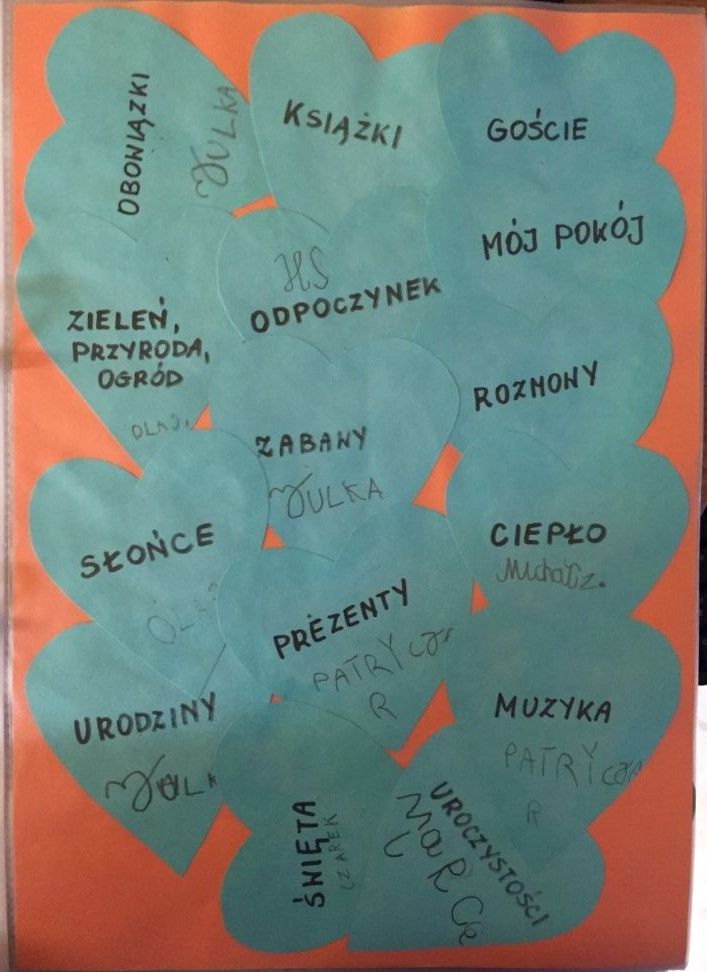 OBOWIĄZKI
JULKA
KSIĄŻKI
GOŚCIE
MÓJ POKÓJ
HS
ODPOCZYNEK
ZIELEŃ,
PRZYRODA,
OGRÓD
ROZMOWY
ZABAWY
JULKA
SŁOŃCE
CIEPŁO
PREZENTY
PATRYCJA
R
URODZINY
MUZYKA
PATRYCJA
R
ŚWIĘTA
CZAREK
UROCZYSTOŚCI